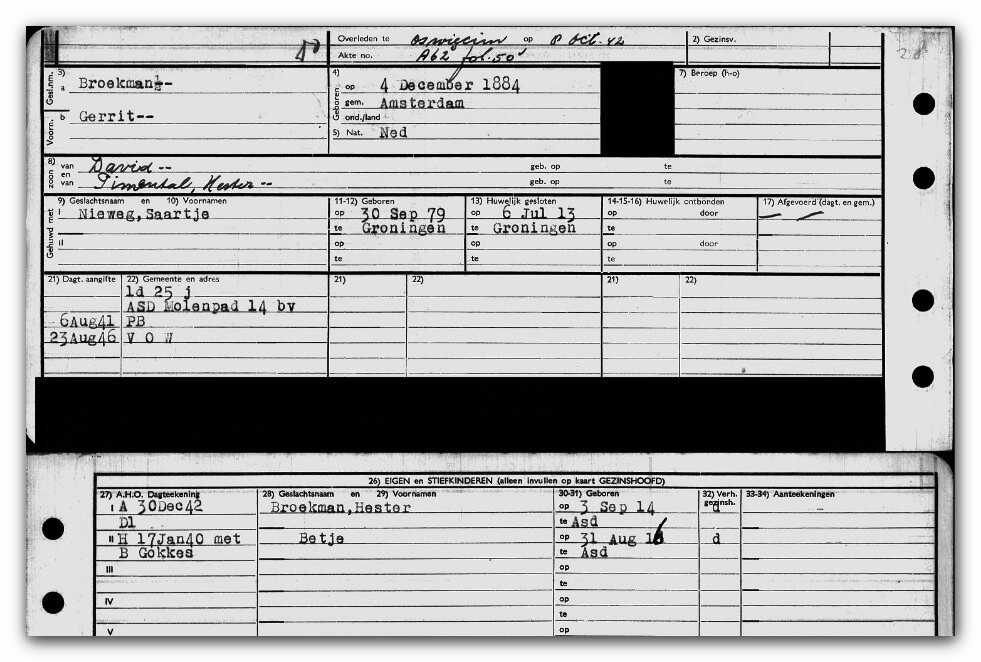 Overleden te Oswiecim op 8 Oct. 42 2) Gezinsv.
Akte no. A62 fol. 50
3) a Broekman
4) op 4 December 1884 7) Beroep (h-o)
Gesl.nm. Geboren gem. Amsterdam
b Gerrit-- ond./land
Voorn. 5) Nat. Ned
8) van David -- geb. op te
zoon en van Pimental, Hester -- geb. op te
9) Geslachtsnaam en 10) Voornamen 11-12) Geboren 13) Huwelijk gesloten 14-15-16) Huwelijk ontbonden 17) Afgevoerd (dagt. en gem.)
Gehuwd met I Nieweg,Saartje op 30 Sep 79 op 6 Jul 13 op door
te Groningen te Groningen te
II op op op door
te te te
21) Dagt. aangifte 22) Gemeente en adres 21) 22) 21) 22)
ld 25 j
ASD Molenpad 14 bv
6Aug41 PB
23Aug46 V O W
26) EIGEN en STIEFKINDEREN (alleen invullen op kaart GEZINSHOOFD)
27) A.H.O. Dagteekening 28) Geslachtsnaam en 29) Voornamen 30-31) Geboren 32) Verh. gezinsh. 33-34) Aanteekeningen
I A 30Dec42 Broekman,Hester op 3 Sep 14 d
Dl te Asd
II H 17Jan40 met Betje op 31 Aug 16 d
B Gokkes te Asd
III op
te
IV op
te
V op